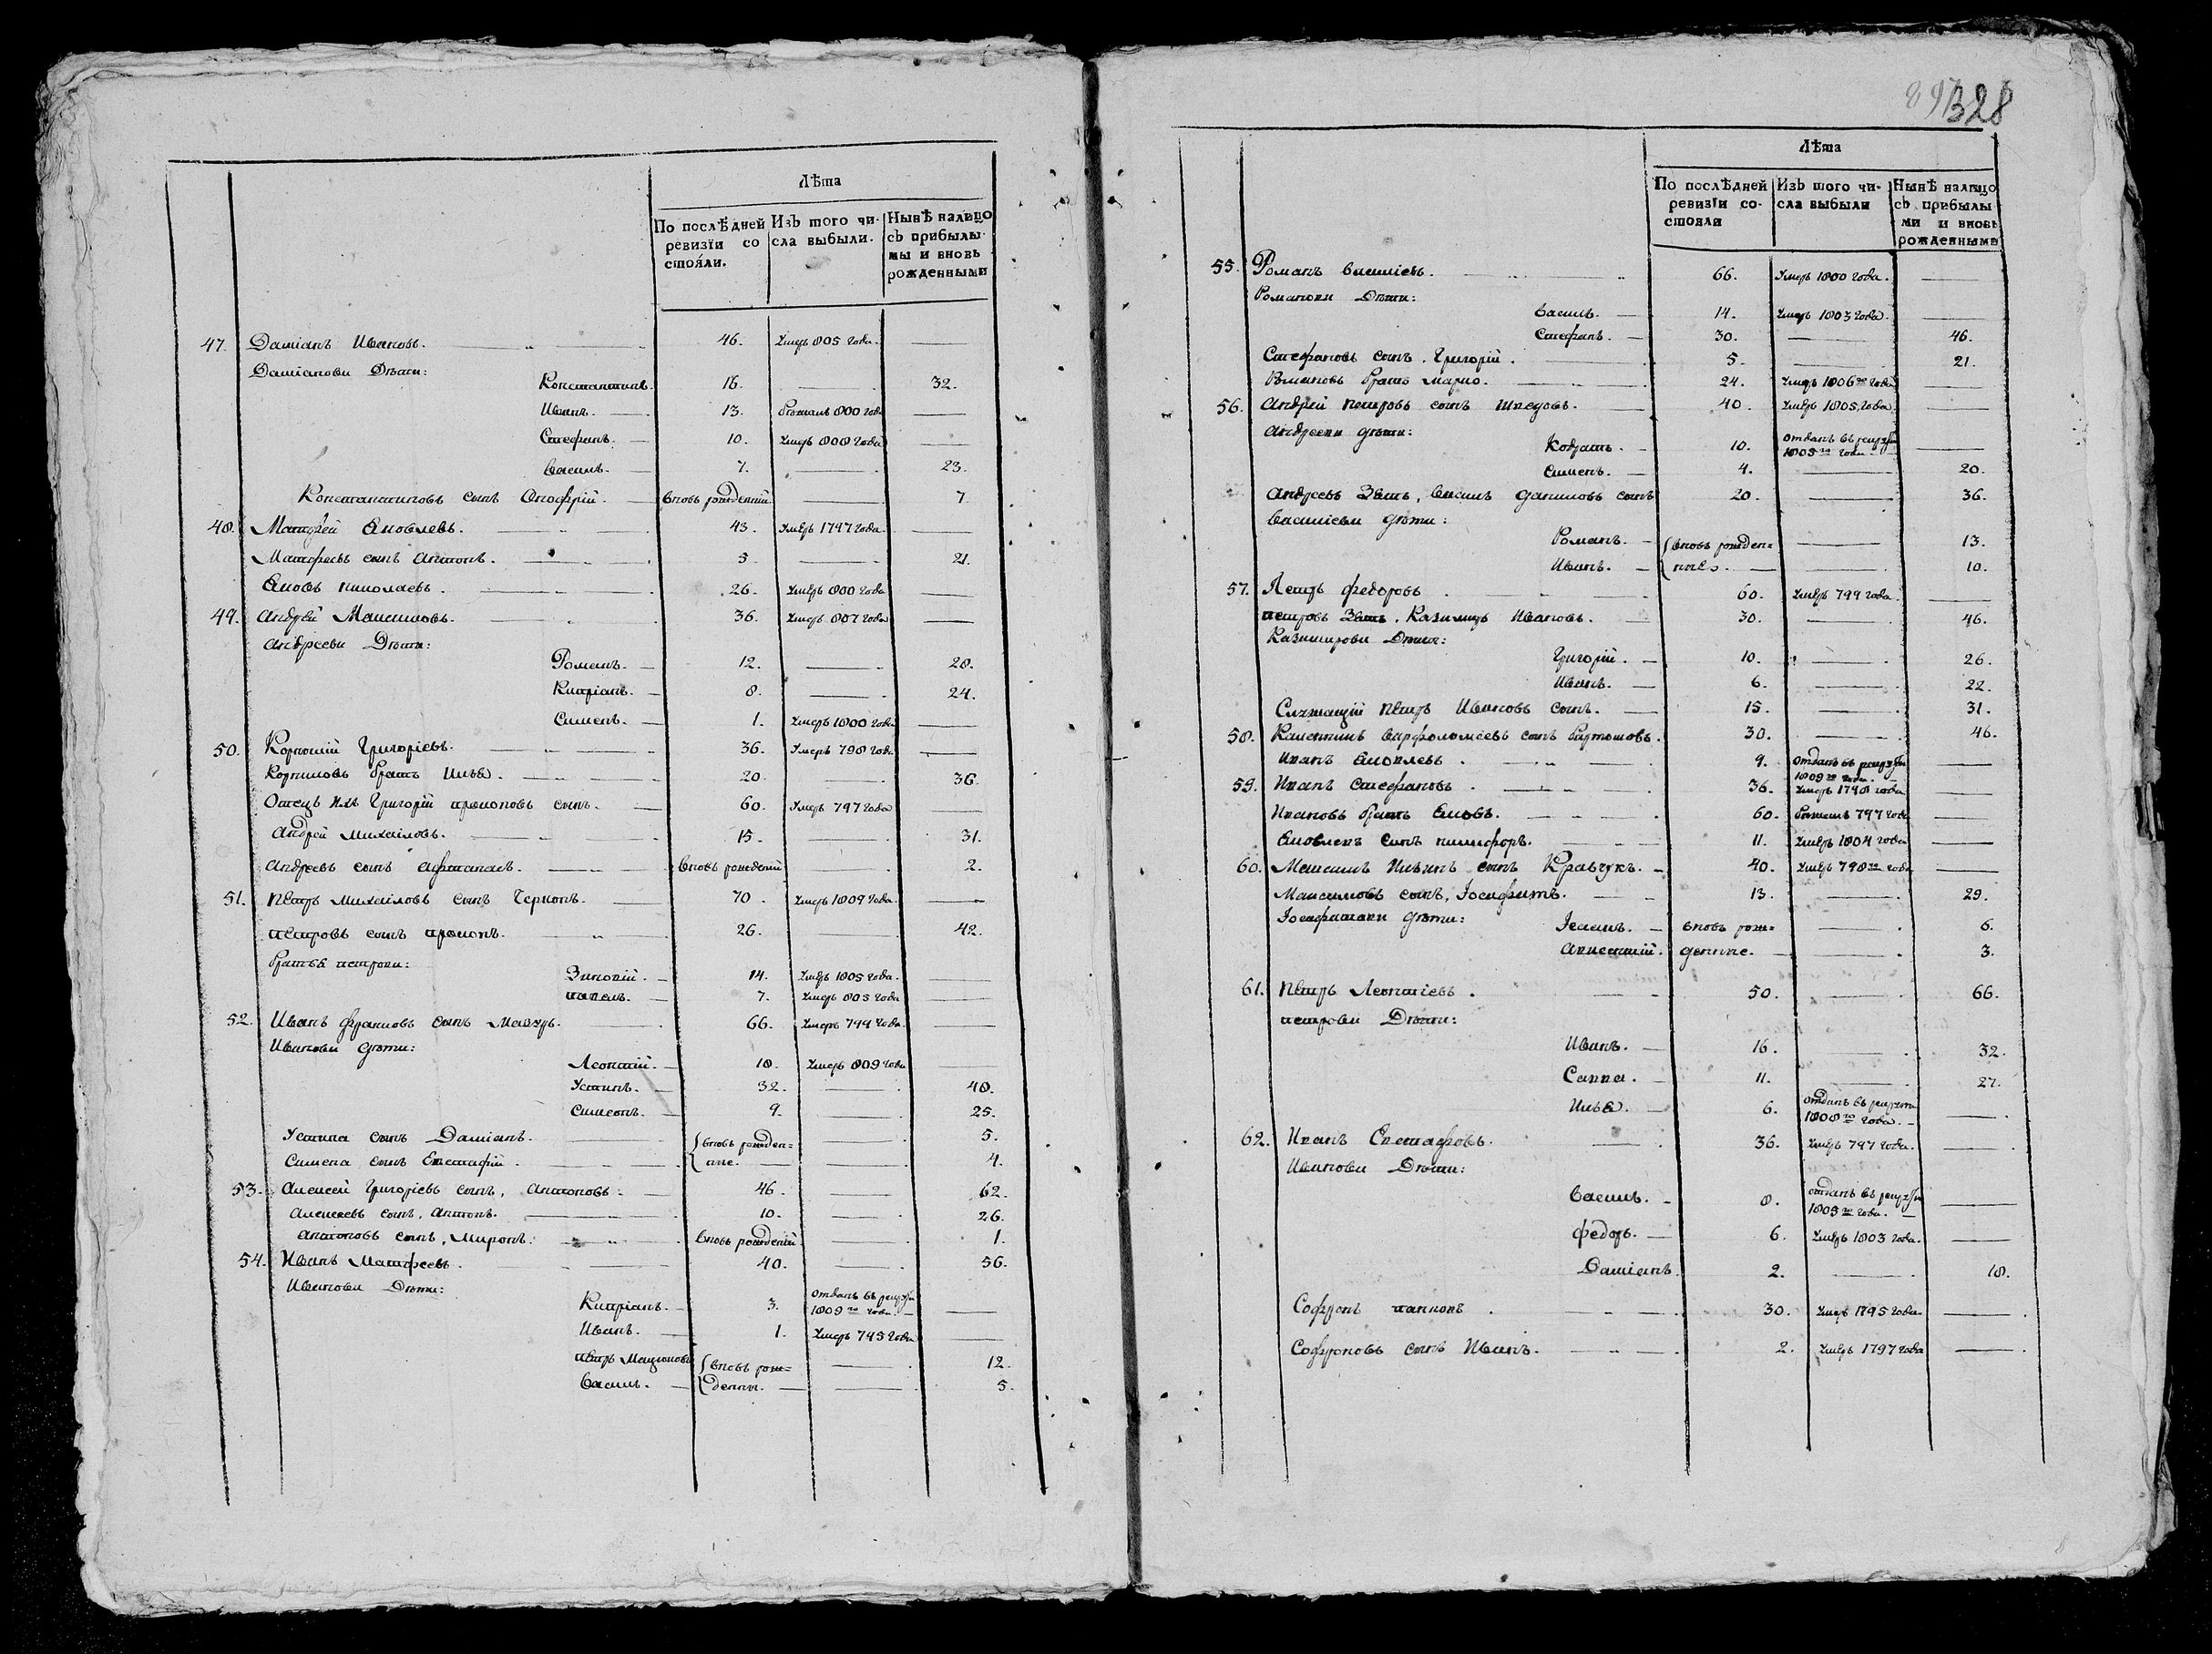 Лѣта
По послѣдней ревизїи состояли.
Изъ того числа выбыли.
Нынѣ налицо съ прибылымы и вновь рожденными
47. Даміанъ Ивановъ. 46. Умеръ 805 года.
Даміановы Дѣти:
Константинъ. 16. 32.
Иванъ. 13. 800 года
Стефанъ. 10. Умеръ 808 года
Василь. 7. 23.
Константиновъ сынъ Онофрій. вновь рожденній 7
48. Матфей Яковлевъ. 43. Умеръ 1797 года.
Матфеевъ сынъ Антонъ. 5. 21.
Яковъ Николаевъ. 26. Умеръ 800 года
49. Андрей Максимовъ. 36. Умеръ 807 года
Андреевы Дѣти:
Романъ. 12. 28.
Кипріанъ. 8. 24.
Сименъ. 1. Умеръ 1800 года
50. Корнилій Григоріевъ. 36. Умеръ 798 года
Корниловъ братъ Илья. 20. 36.
Отецъ ихъ Григорій Прокоповъ сынъ. 60. Умеръ 797 года
Андрей Михайловъ. 15. 31.
Андреевъ сынъ Афтанасъ. вновь рожденій 2.
51. Петръ Михайловъ сынъ Чернонъ. 70. Умеръ 1809 года.
Петровъ сынъ Прокопъ. 26. 42.
Братья Петровы:
Зиновій. 14. Умеръ 1805 года.
Павелъ. 7. Умеръ 805 года
52. Иванъ Франковъ сынъ Мазуръ. 66. Умеръ 799 года.
Ивановы дѣти:
Леонтій. 18. Умеръ 809 года
Устинъ. 32. 48.
Симеонъ. 9. 25.
Устина сынъ Даміанъ. вновь рожден= 5.
Симена сынъ Евстафій. ные. 4.
53. Алексей Григоріевъ сынъ, Антоновъ. 46. 62.
Алексеевъ сынъ, Антонъ. 10. 26.
Антоновъ сынъ, Миронъ. вновь рожденій 1.
54. Иванъ Матфеевъ. 40. 56.
Ивановы Дѣти:
Кипріанъ. 3. отданъ въ рекруты 1809го года.
Иванъ. 1. Умеръ 795 года
Петръ вновь рож= 12.
Василь. денны. 5.
328
Лѣта
По послѣдней ревизїи состояли
Изъ того числа выбыли
Нынѣ налицо съ прибылыми и вновь рожденными
55. Романъ Василіевъ. 66. Умеръ 1800 года.
Романовы Дѣти:
Василь. 14. Умеръ 1803 года.
Стефанъ. 30. 46.
Стефановъ сынъ. Григорій. 5. 21.
братъ Марко. 24. Умеръ 1806го года
56. Андрей Петровъ сынъ Шведовъ. 40. Умеръ 1805. года.
Андреевы дѣти:
Кодратъ. 10. отданъ въ рекруты 1805го года
Сименъ. 4. 20.
Андреевъ Зять, Василь Даниловъ сынъ 20. 36.
Василіевы дѣти:
Романъ. вновь рожден= 13.
Иванъ. ные. 10.
57. Петръ Федоровъ 60. Умеръ 799 года.
Петровъ Зять, Казимиръ Ивановъ. 30. 46.
Казимировы Дѣти:
Григорій. 10. 26.
Иванъ. 6. 22.
Служащій Петръ Ивановъ сынъ. 15. 31.
58. Калистинъ Варфоломеевъ сынъ 30. 46.
Иванъ Яковлевъ. 9. отданъ въ рекруты 1809го года.
59. Иванъ Стефановъ. 36. Умеръ 1798 года
Ивановъ братъ Яковъ. 60. 797 года
Яковлевъ сынъ Никифоръ. 11. Умеръ 1804 года
60. Максимъ Ильинъ сынъ Кравчукъ. 40. Умеръ 798го года
Максимовъ сынъ, Іосифатъ. 13. 29.
Іосифатовы дѣти:
вновь рож= 6.
денные. 3.
61. Петръ Леонтіевъ. 50. 66.
Петровы Дѣти:
Иванъ. 16. 32.
Савва. 11. 27.
Илья. 6. отданъ въ рекруты 1808го года.
62. Иванъ Евстафовъ. 36. Умеръ 797 года.
Ивановы Дѣти:
Василь. 8. отданъ въ рекруты 1805го года.
Федоръ. 6. Умеръ 1803 года.
Даміанъ. 2. 18.
Софронъ 30. Умеръ 1795 года
Софроновъ сынъ Иванъ. 2. Умеръ 1797 года